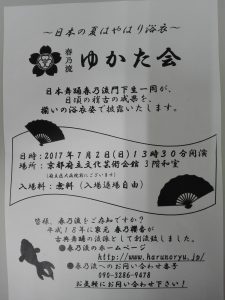 ～日本の夏はやはり浴衣～
春乃流
ゆかた会
日本舞踊春乃流門下生一同が、
日頃の稽古の成果を、
揃いの浴衣姿で披露いたします。
日時：2017年7月2日(日)13時30分開演
場所：京都府立文化芸術会館 3階和室
入場料：無料（入場退場自由）
皆様、春乃流をご存知ですか？
平成18年に家元 春乃櫻香が
古典舞踊の流派として創流致しました。
●春乃流のホームページ
http://www.harunoryu.jp/
●春乃流へのお問い合わせ番号
090-3286-9678
お気軽にお問い合わせ下さい！